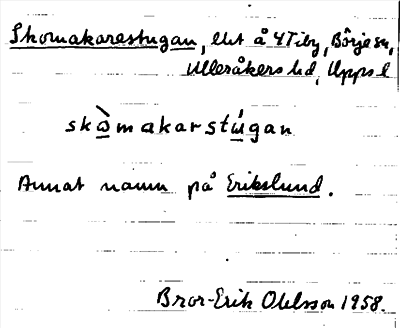 Skomakarestugan, lht å Y Tiby, Börje sn,
Ulleråkers hd, Uppsl
skòmakarstúgan
Annat namn på Erikslund.
Bror-Erik Ohlsson 1958.